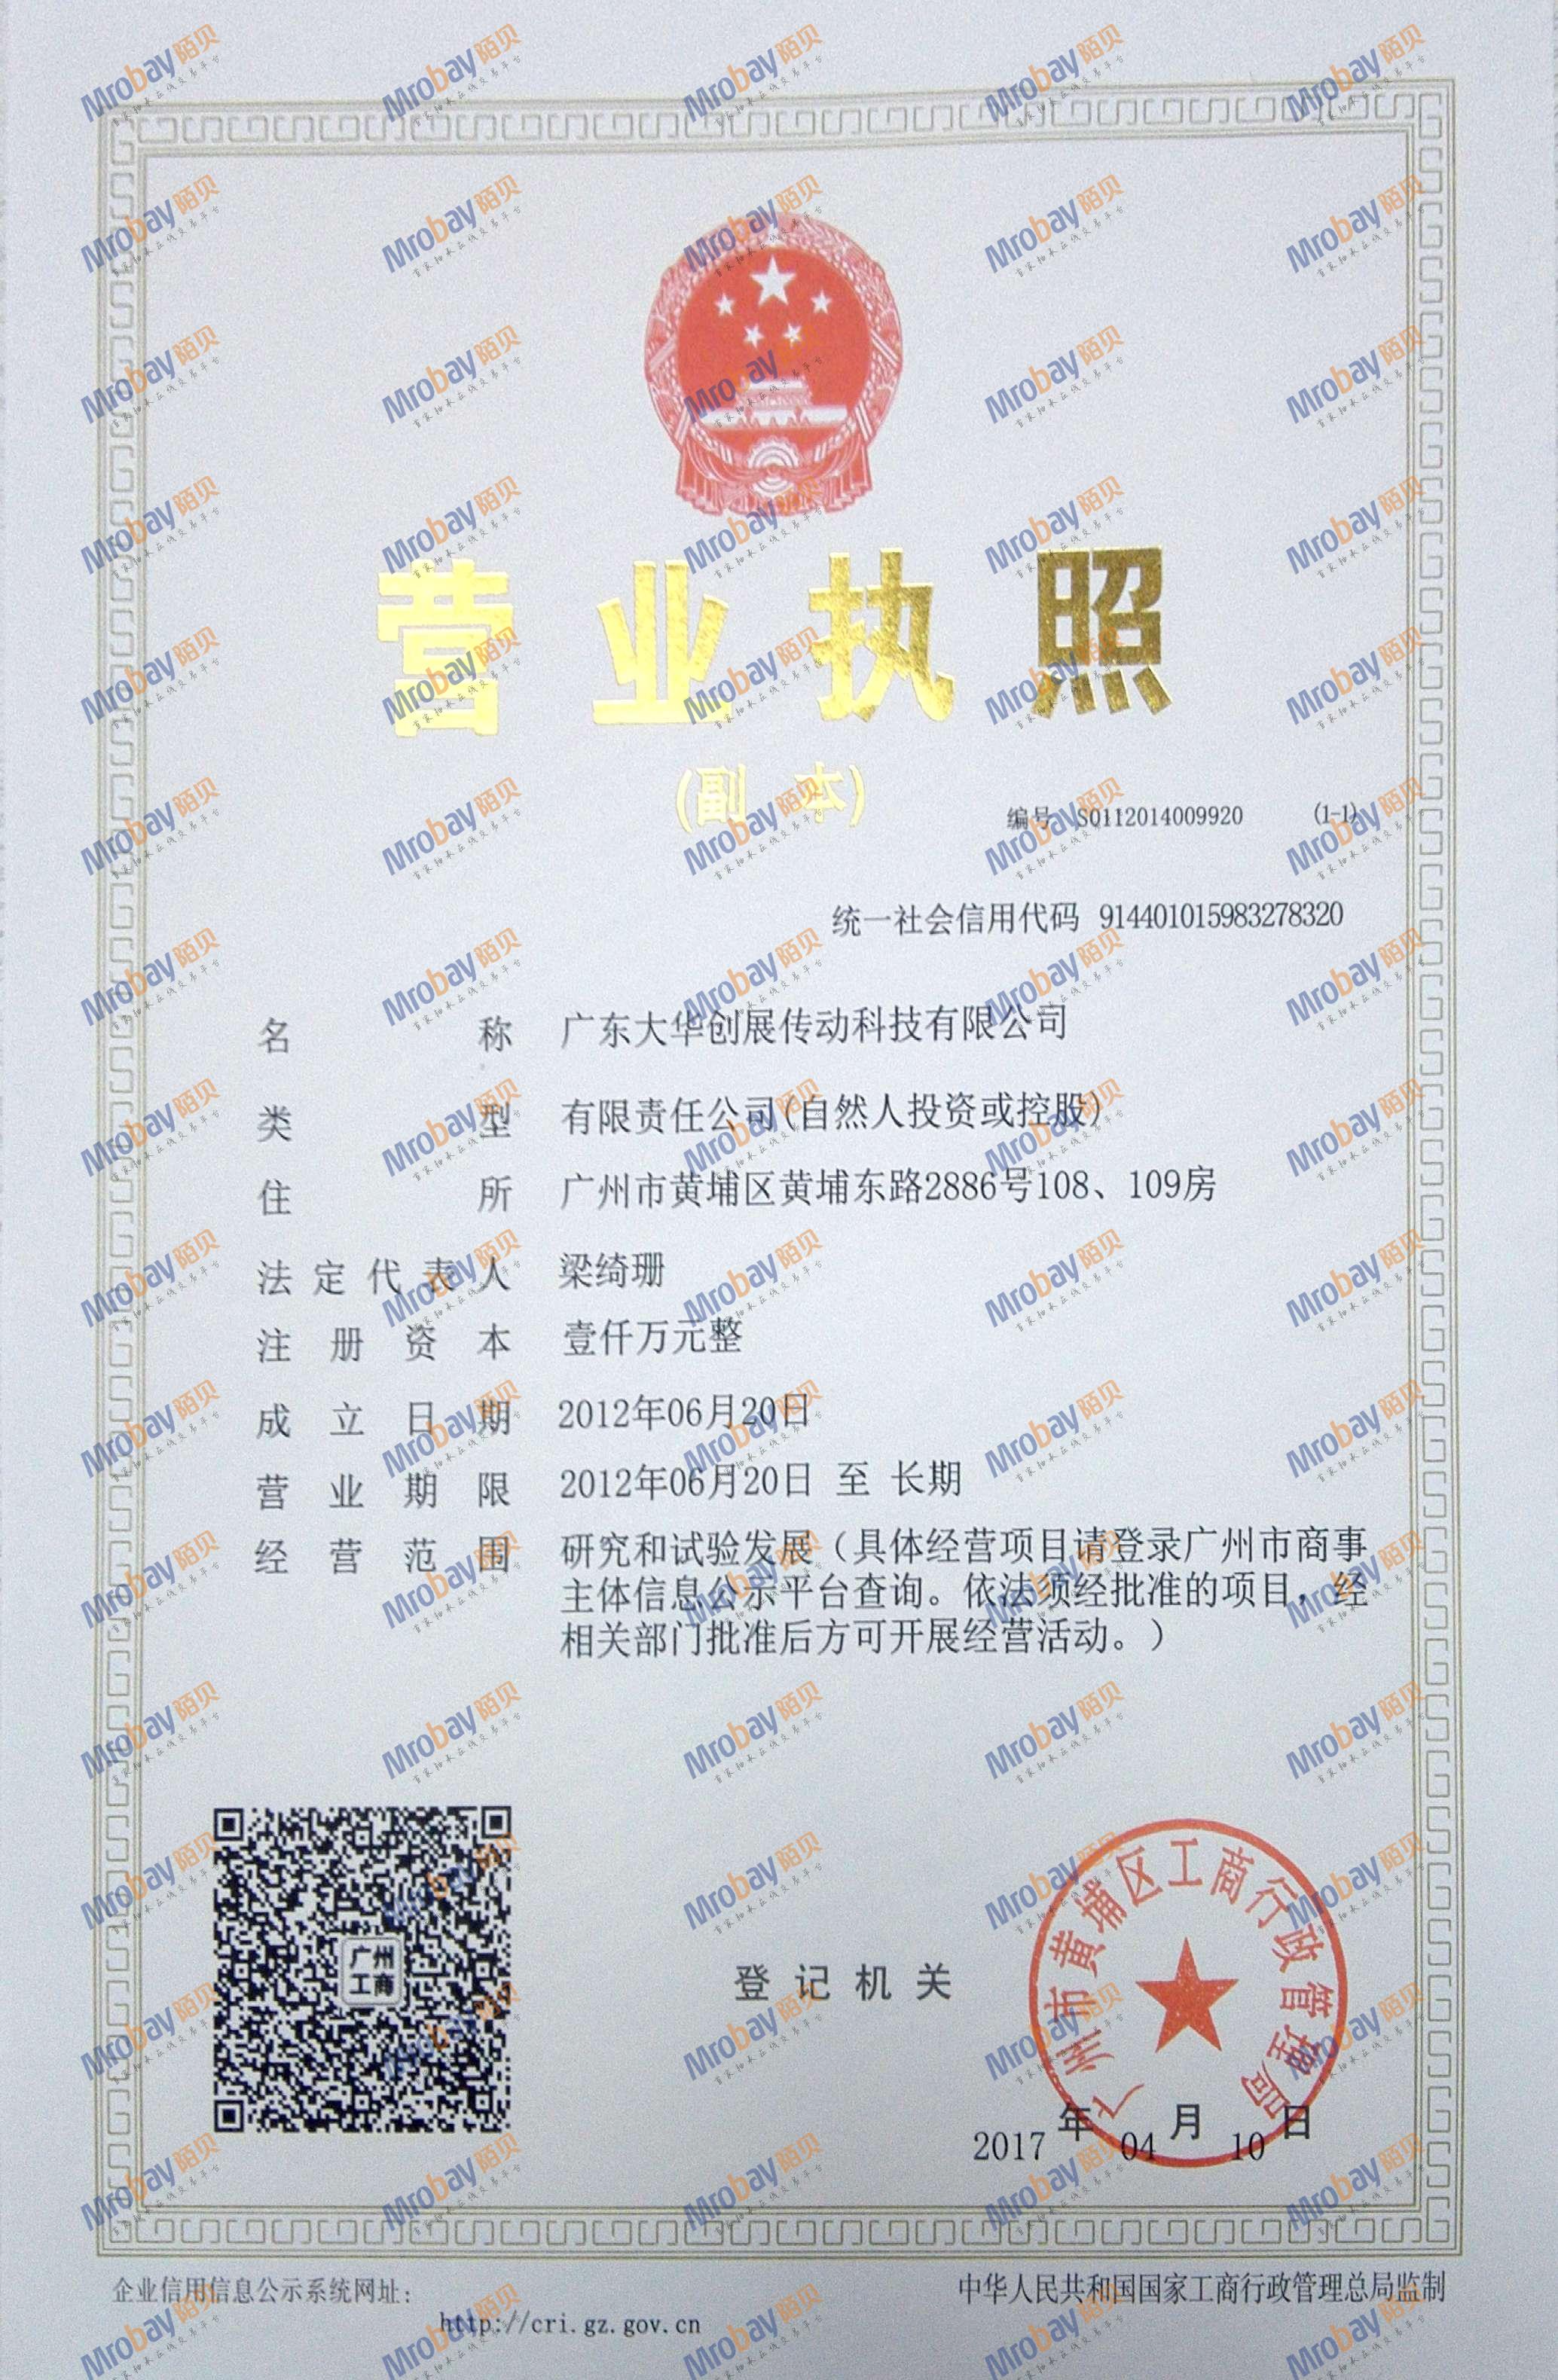 营业执照
(副 本)
编号 S0112014009920 (1-1)
统一社会信用代码 914401015983278320
名称 广东大华创展传动科技有限公司
类型 有限责任公司(自然人投资或控股)
住所 广州市黄埔区黄埔东路2886号108、109房
法定代表人 梁绮珊
注册资本 壹仟万元整
成立日期 2012年06月20日
营业期限 2012年06月20日 至 长期
经营范围 研究和试验发展（具体经营项目请登录广州市商事
主体信息公示平台查询。依法须经批准的项目，经
相关部门批准后方可开展经营活动。）
广州
工商
登记机关
广州市黄埔区工商行政管理局
2017年04月10日
企业信用信息公示系统网址：
http://cri.gz.gov.cn
中华人民共和国国家工商行政管理总局监制
Mrobay陌贝